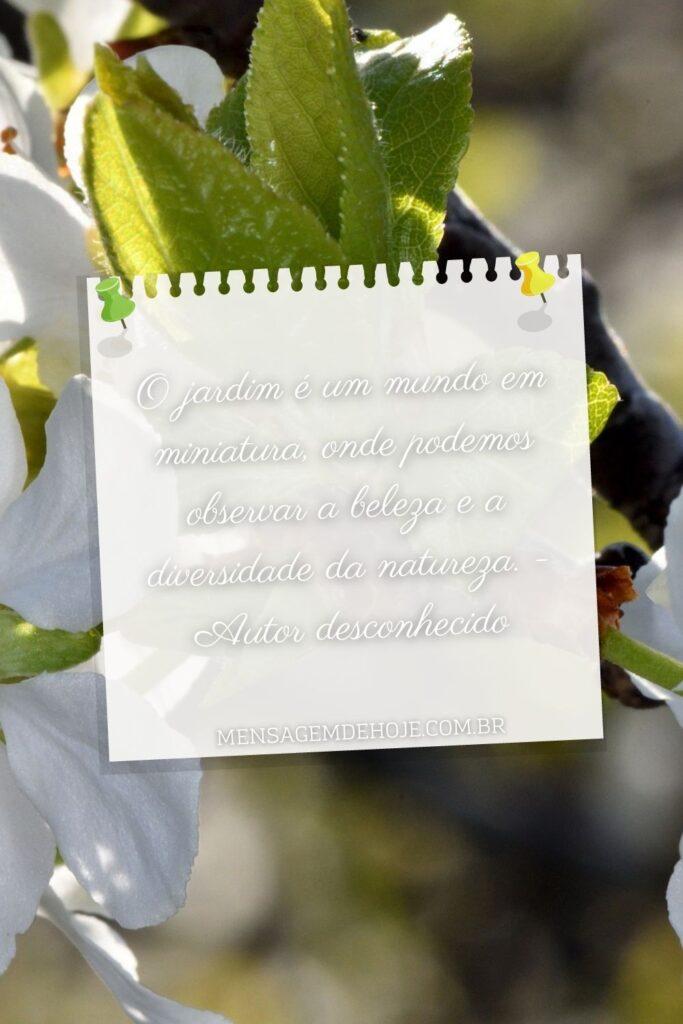 O jardim é um mundo em
miniatura, onde podemos
observar a beleza e a
diversidade da natureza. -
Autor desconhecido
MENSAGEMDEHOJE.COM.BR